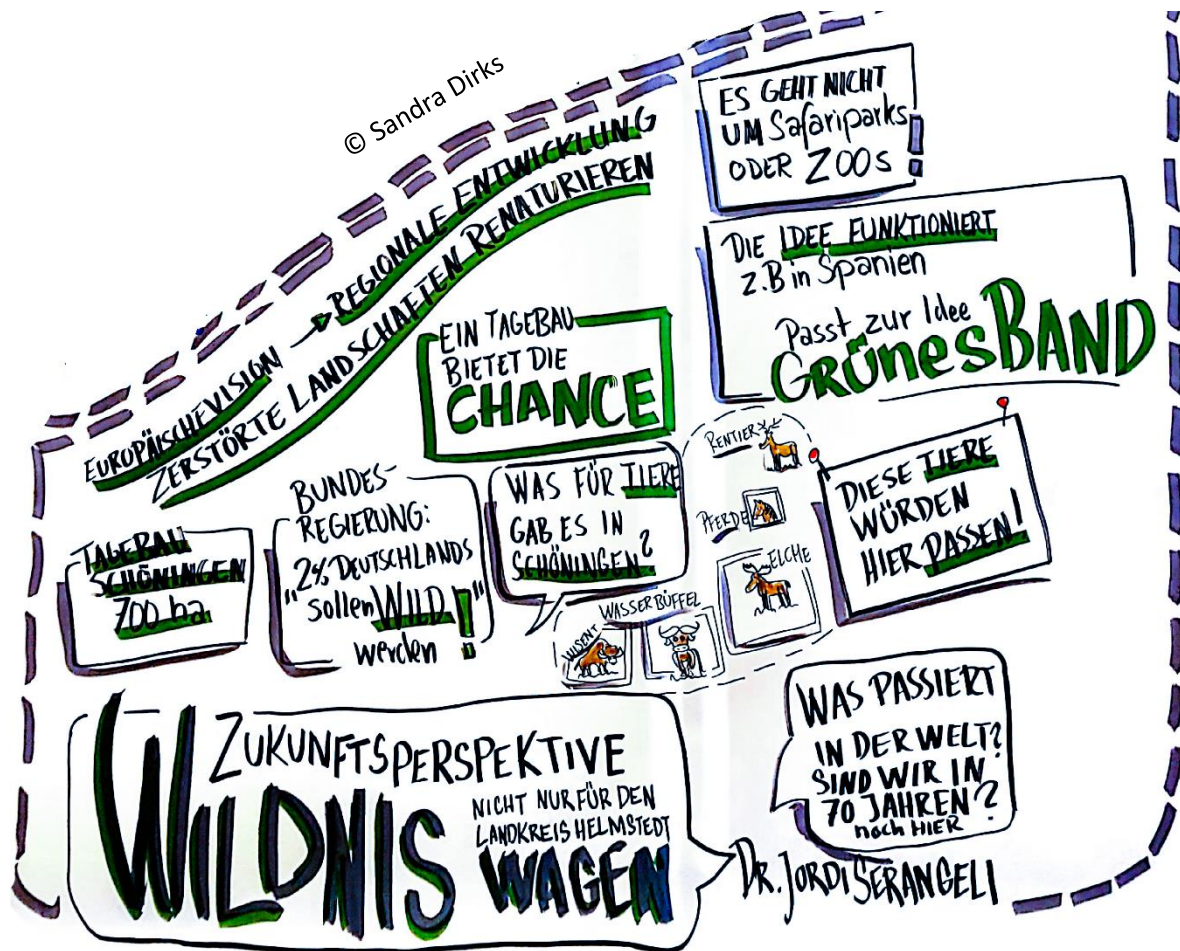 © Sandra Dirks
EUROPÄISCHE VISION → REGIONALE ENTWICKLUNG
ZERSTÖRTE LANDSCHAFTEN RENATURIEREN
ES GEHT NICHT
UM Safariparks
ODER ZOOS!
DIE IDEE FUNKTIONIERT
z.B in Spanien
Passt zur Idee
GRÜNES BAND
EIN TAGEBAU
BIETET DIE
CHANCE
TAGEBAU
SCHÖNINGEN
700 ha
BUNDES-
REGIERUNG:
"2% DEUTSCHLANDS
sollen WILD!"
werden
WAS FÜR TIERE
GAB ES IN
SCHÖNINGEN?
RENTIER
PFERDE
ELCHE
WASSERBÜFFEL
WISENT
DIESE TIERE
WÜRDEN
HIER PASSEN!
ZUKUNFTSPERSPEKTIVE
WILDNIS
NICHT NUR FÜR DEN
LANDKREIS HELMSTEDT
WAGEN
WAS PASSIERT
IN DER WELT?
SIND WIR IN
70 JAHREN?
noch HIER
DR. JORDI SERANGELI